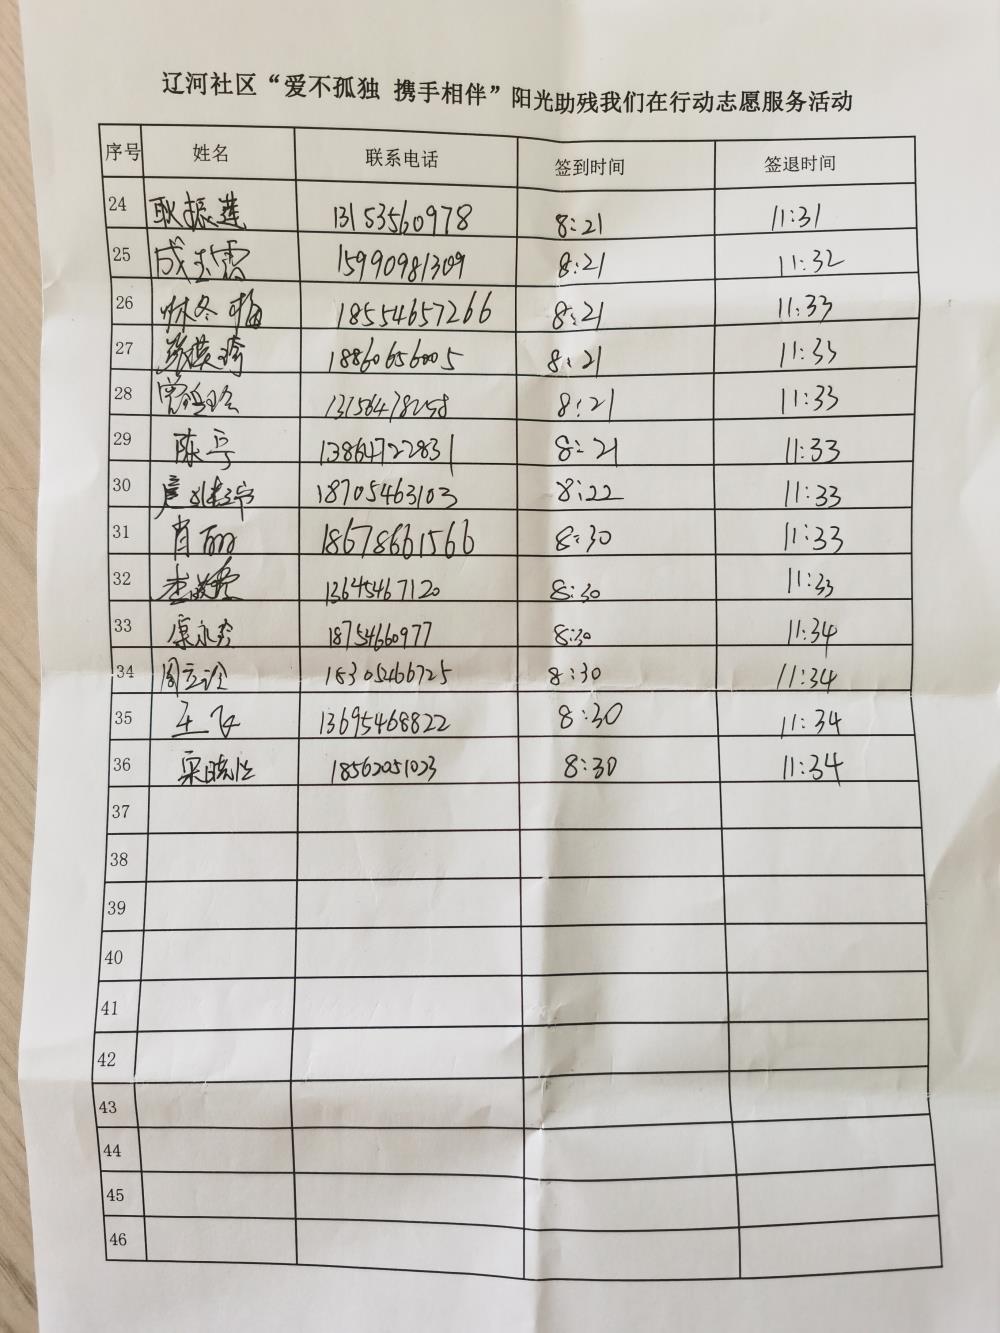 辽河社区“爱不孤独 携手相伴”阳光助残我们在行动志愿服务活动
序号 姓名 联系电话 签到时间 签退时间
24 耿振莲 13153560978 8:21 11:31
25 成玉霞 15990981309 8:21 11:32
26 林冬梅 18554657266 8:21 11:33
27 8:21 11:33
28 8:21 11:33
29 陈亭 13864722831 8:21 11:33
30 18705463103 8:22 11:33
31 肖丽 18678661566 8:30 11:33
32 13645467120 8:30 11:33
33 康永芬 18754660977 8:30 11:34
34 周立诠 15305466725 8:30 11:34
35 王飞 13695468822 8:30 11:34
36 18562051023 8:30 11:34
37
38
39
40
41
42
43
44
45
46